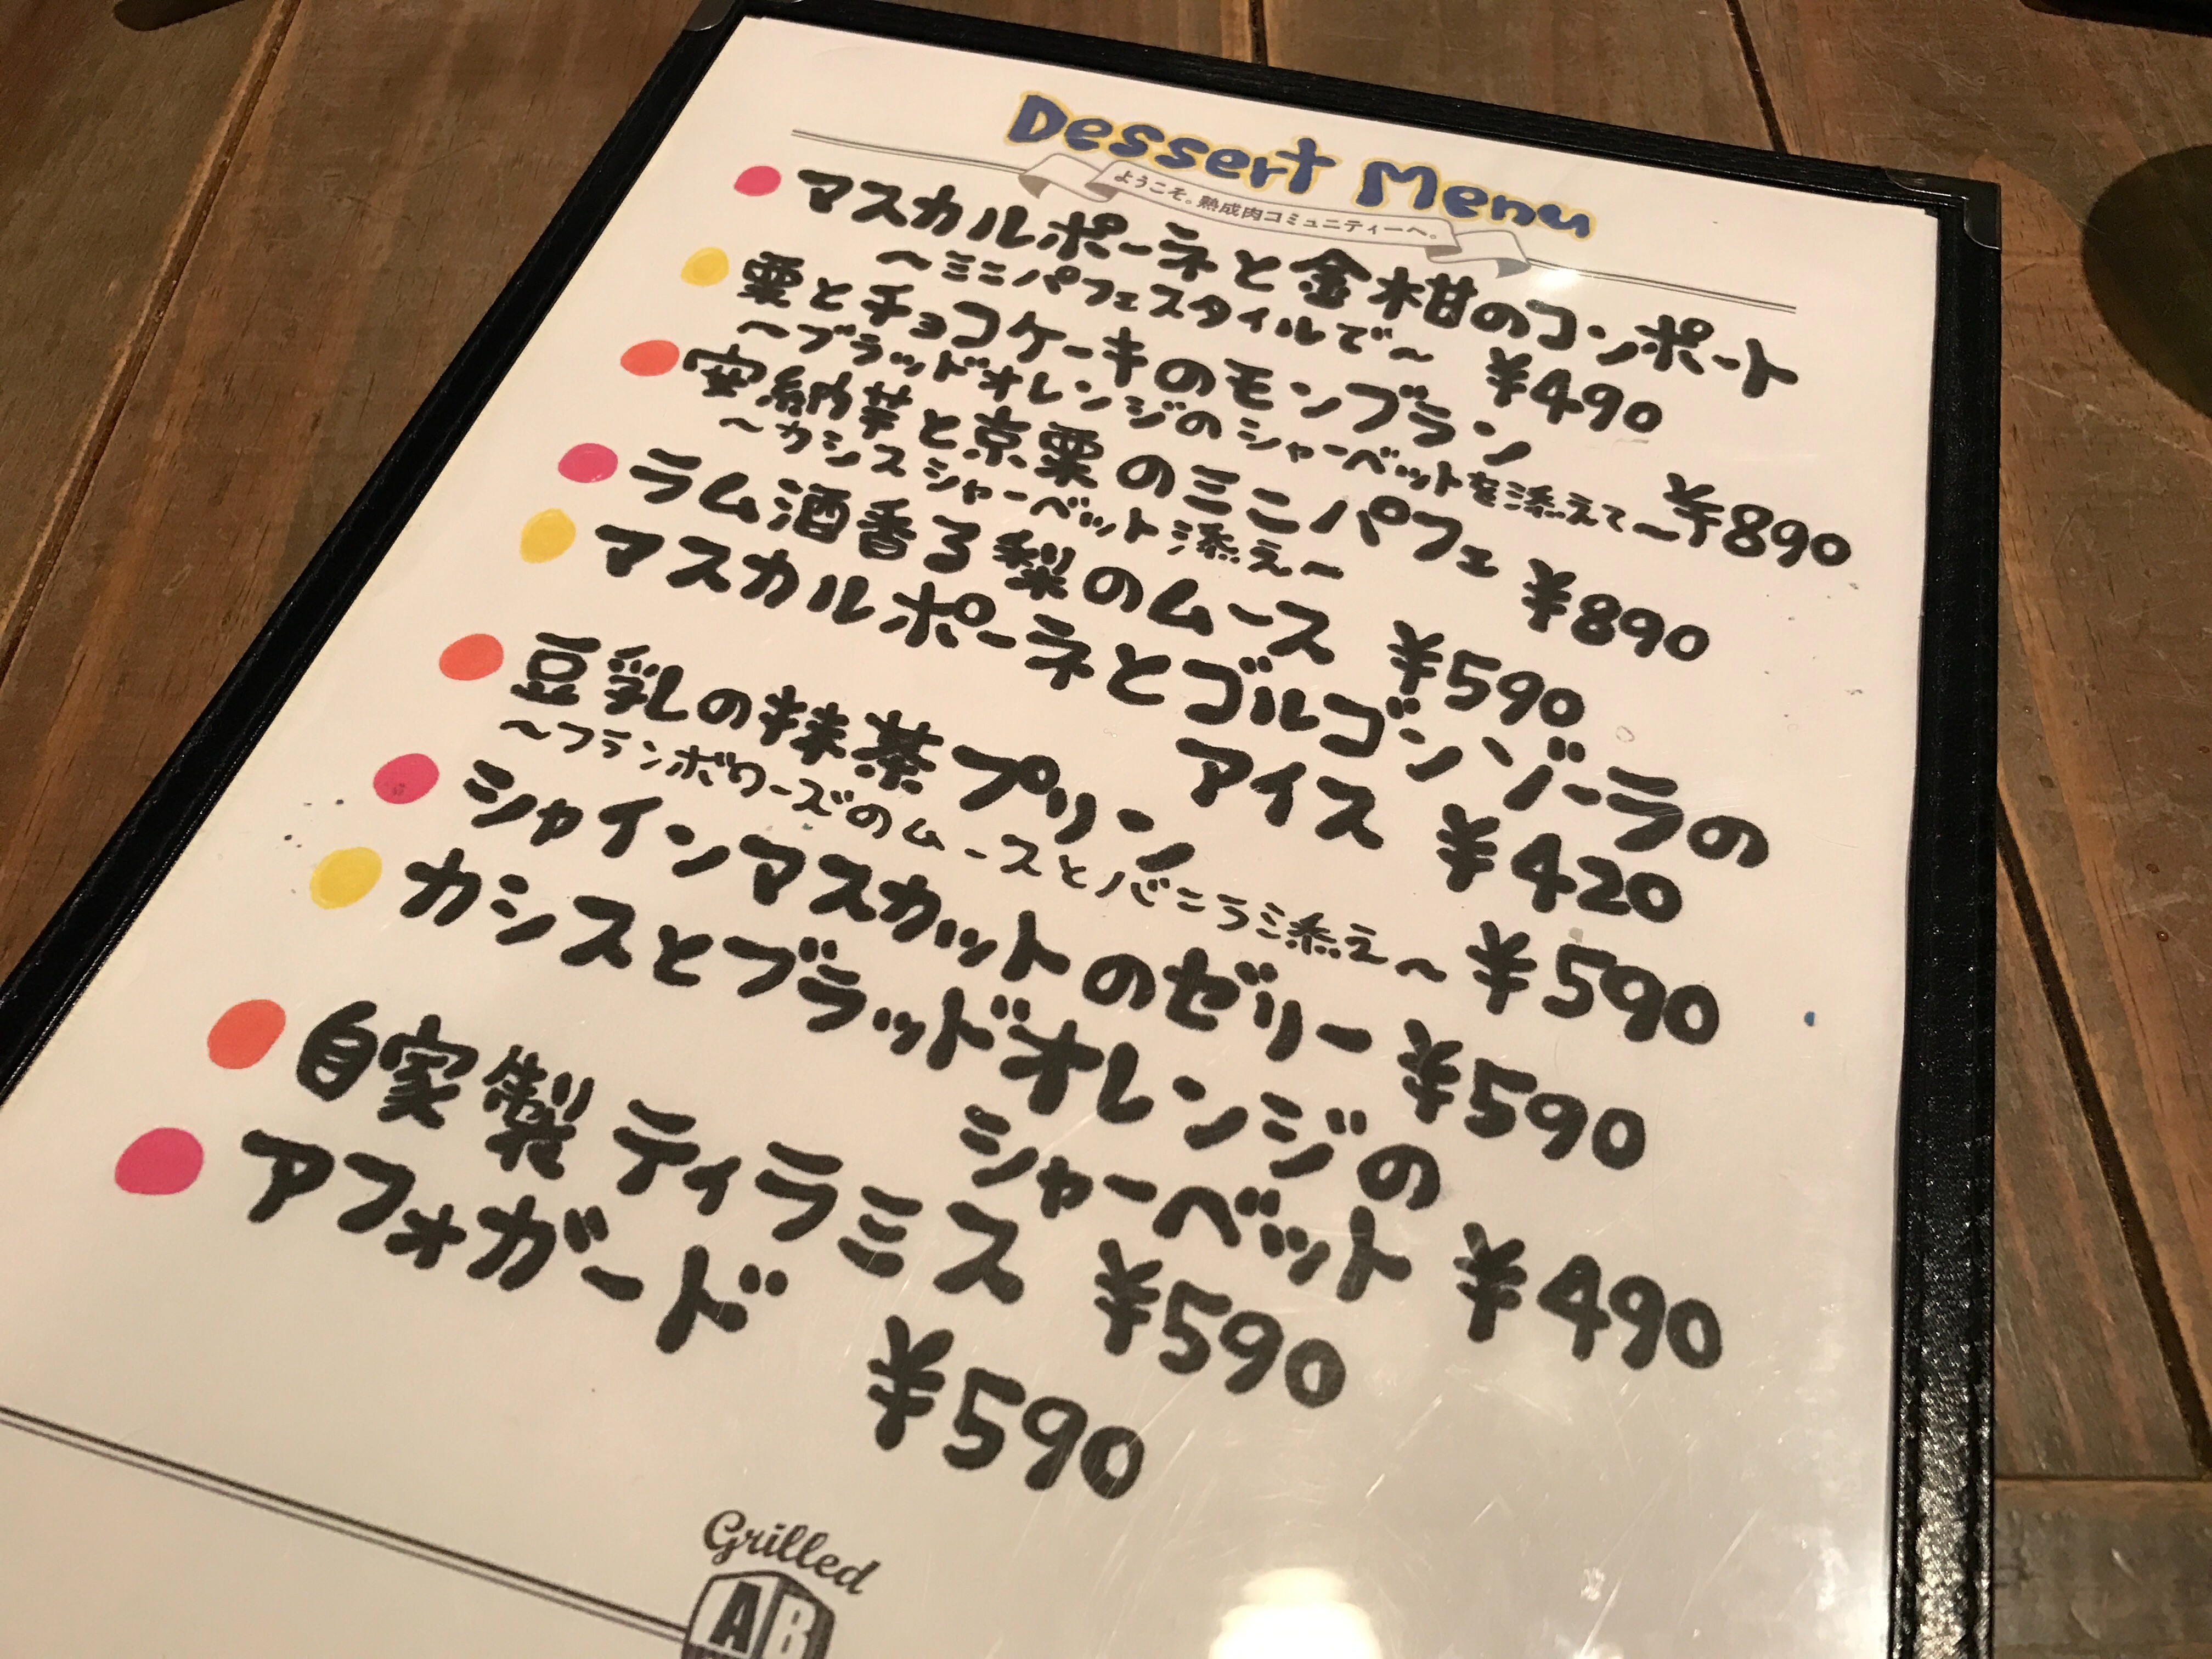 Dessert Menu
ようこそ。熟成肉コミュニティーへ。
マスカルポーネと金柑のコンポート
〜ミニパフェスタイルで〜 ¥490
栗とチョコケーキのモンブラン
〜ブラッドオレンジのシャーベットを添えて〜 ¥890
安納芋と京栗のミニパフェ ¥890
〜カシスシャーベット添え〜
ラム酒香る梨のムース ¥590
マスカルポーネとゴルゴンゾーラの
アイス ¥420
豆乳の抹茶プリン
〜フランボワーズのムースとバニラ添え〜 ¥590
シャインマスカットのゼリー ¥590
カシスとブラッドオレンジの
シャーベット ¥490
自家製ティラミス ¥590
アフォガード ¥590
Grilled
AB